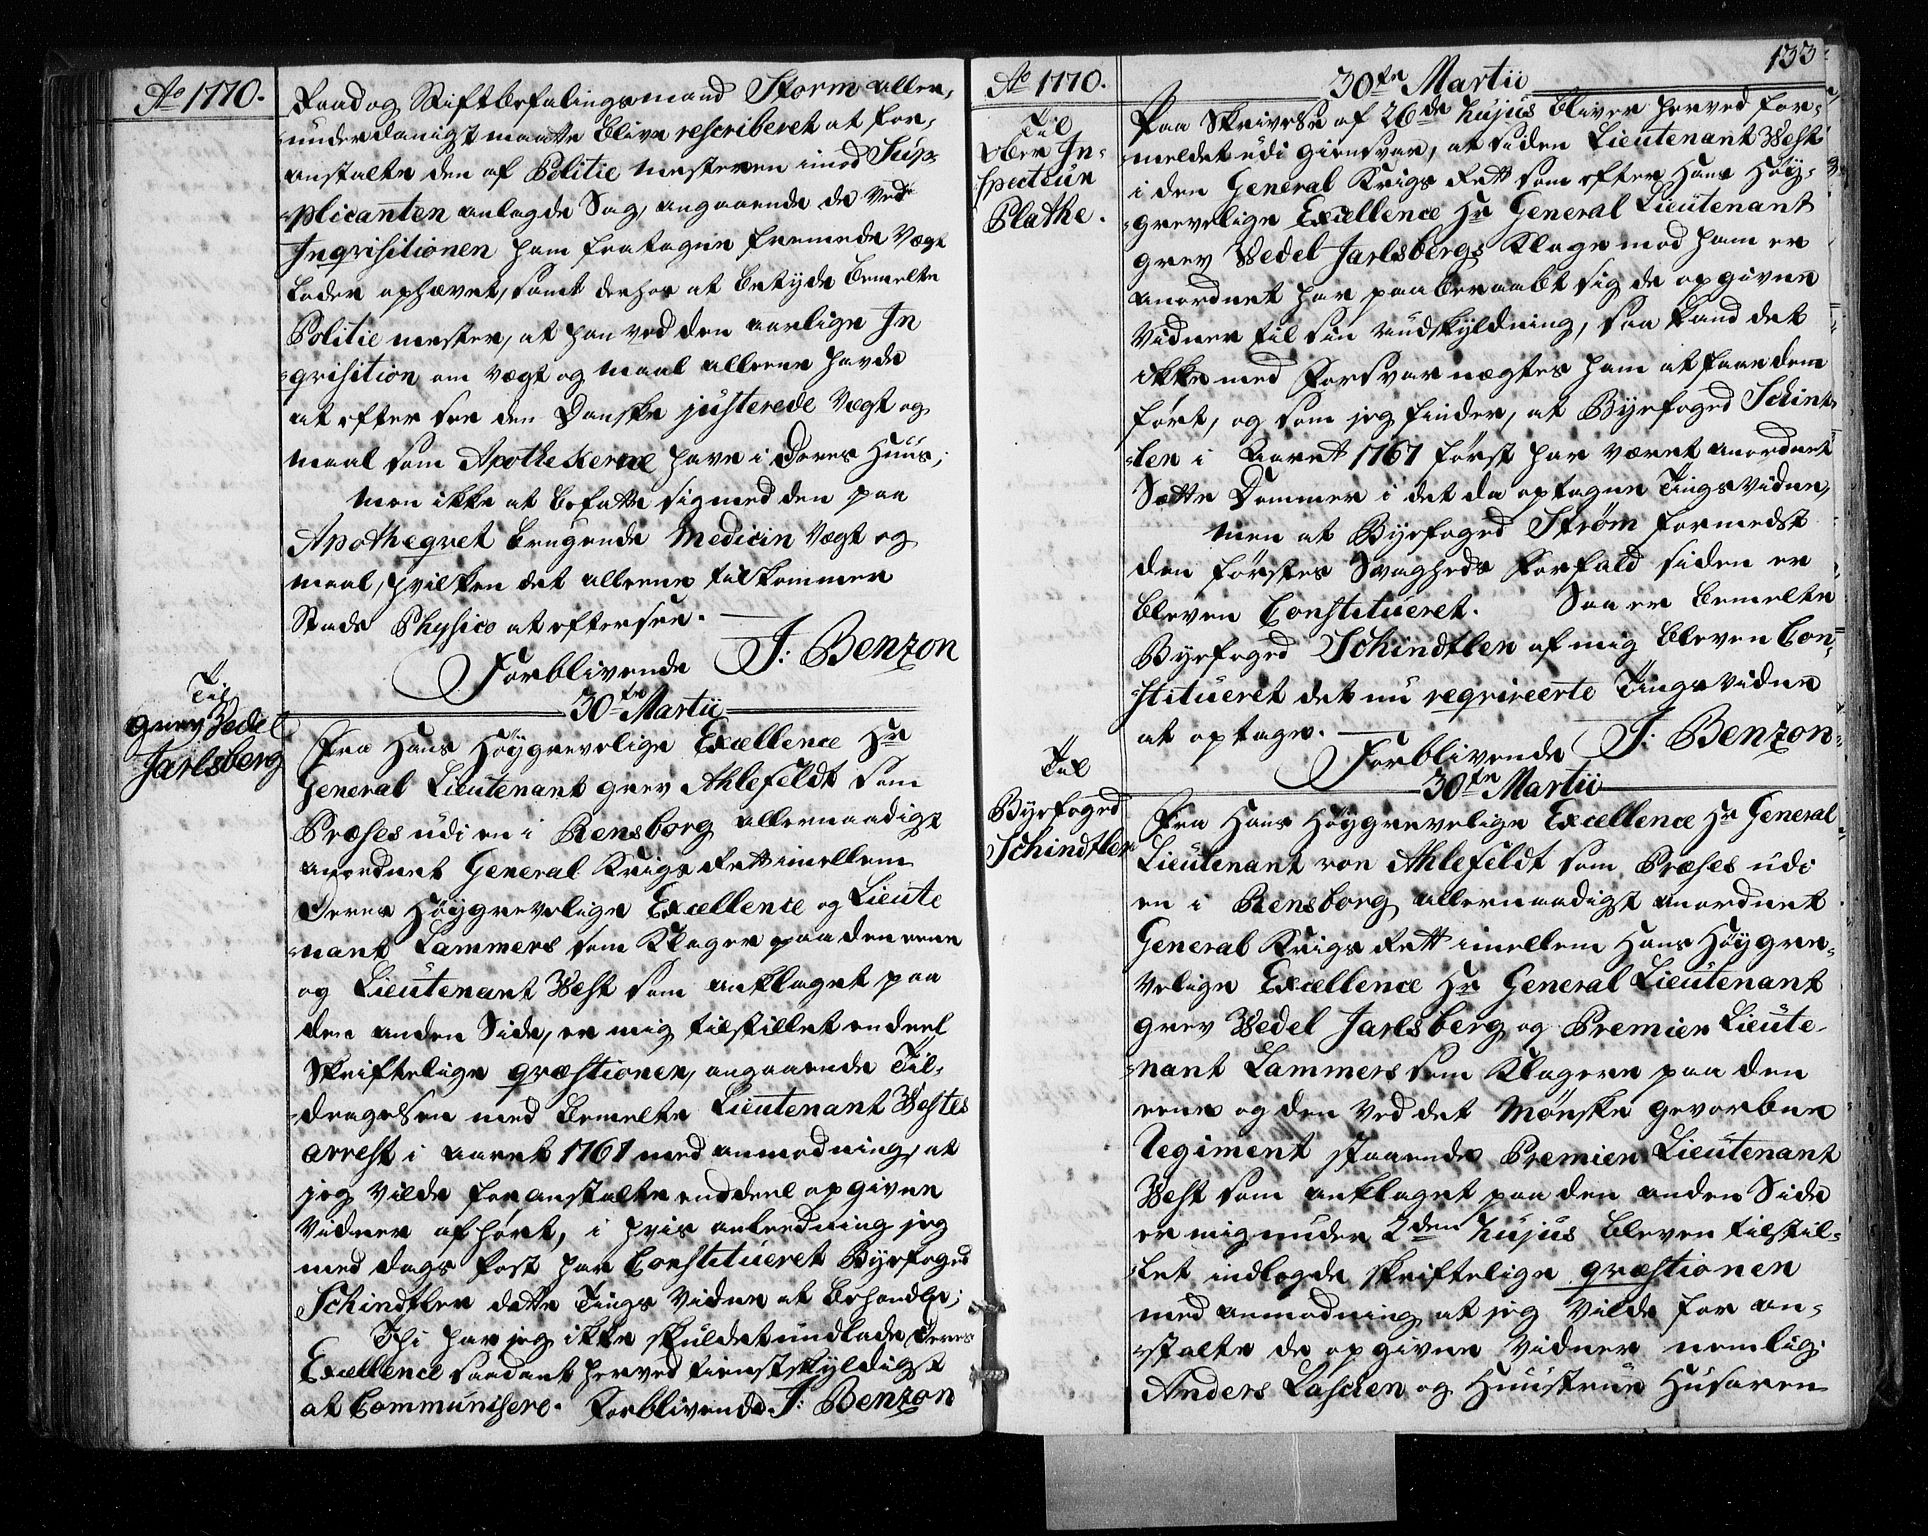 Ao 1770.
Raad og Stiftbefalingsmand Storm aller,
underdanigst maatte blive rescriberet at for,
anstalte den af Politie mesteren imod Sup,
plicanten anlagde Sag, angaaende de ved
Inqvisitionen ham fratagne fremede Vægt
Loder ophævet, samt derhos at betyde bemelte
Politie mester, at han ved den aarlige In
qvisition om Vægt og maal alleene havde
at efter see den Danske justerede Vægt og
maal som Apothekerne have i Deres Huus;
men ikke at befatte sig med den paa
Apotheqvet brugende Medicin Vægt og
maal, hvilken det alleene tilkommer
Stads Physico at eftersee.
Forblivende J: Benzon
Til
grev Vedel
Jarlsberg
30te Martii
Fra Hans Höygrevelige Excellence Hr
General Lieutenant grev Ahlefeldt som
Præses udi en i Rensborg allernaadigst
anordnet General Krigs Rett imellem
Deres Höygrevelige Excellence og Lieute
nant Lammers som Klager paa den eene
og Lieutenant West som anklaget paa
den anden Side, er mig tilstillet endeel
skriftelige qvæstioner, angaaende Til,
dragelsen med bemelte Lieutenant Westes
arrest i aaret 1767 med anmodning, at
jeg vilde foranstalte endeel opgivne
Vidner afhørt, i hvis anledning jeg
med dags Post har Constitueret Byefoged
Schindtler dette Tings Vidne at behandle;
Thi har jeg ikke skuldet undlade Deres
Excellence saadant herved tienstskyldigst
at Communisere. Forblivende J: Benzon
133.
Ao 1770.
30te Martii
Til
Ober In-
specteur
Plathe.
Paa Skrivelse af 26de hujus bliver herved for-
meldet udi giensvar, at siden Lieutenant West
i den General Krigs Rett som efter Hans Höy,
grevelige Excellence Hr General Lieutenant
grev Wedel Jarlsbergs Klage mod ham er
anordnet har paaberaabt sig de opgivne
Vidner til sin undskyldning, saa kand det
ikke med Forsvar nægtes ham at faae dem
ført, og som jeg finder, at Byefoged Schint,
ler i Aaret 1767 først har været anordnet
Sætte Dommer i det da optagne Tings Vidne,
men at Byefoged Strøm formedelst
den førstes Svagheds Forfald siden er
bleven Constitueret. Saa er bemelte
Byefoged Schindtler af mig bleven Con,
stitueret det nu reqvireerte Tings Vidne
at optage.
Forblivende J: Benzon
Til
Byefoged
Schindtler
30te Martii
Fra Hans Höygrevelige Excellence Hr General
Lieutenant von Ahlefeldt som Præses udi
en i Rensborg allernaadigst anordnet
General Krigs Rett imellem Hans Höygre,
velige Excellence Hr General Lieutenant
grev Wedel Jarlsberg og Premier Lieute-
nant Lammers som Klagere paa den
eene og den ved det Mønske gevorbne
Regiment staaende Premier Lieutenant
West som anklaget paa den anden Side
er mig under 2den hujus bleven tilstil,
let indlagde skriftelige qvæstioner
med anmodning at jeg vilde for an-
stalte de opgivne Vidner nemlig:
Anders Larsen og Huustrue Husaren